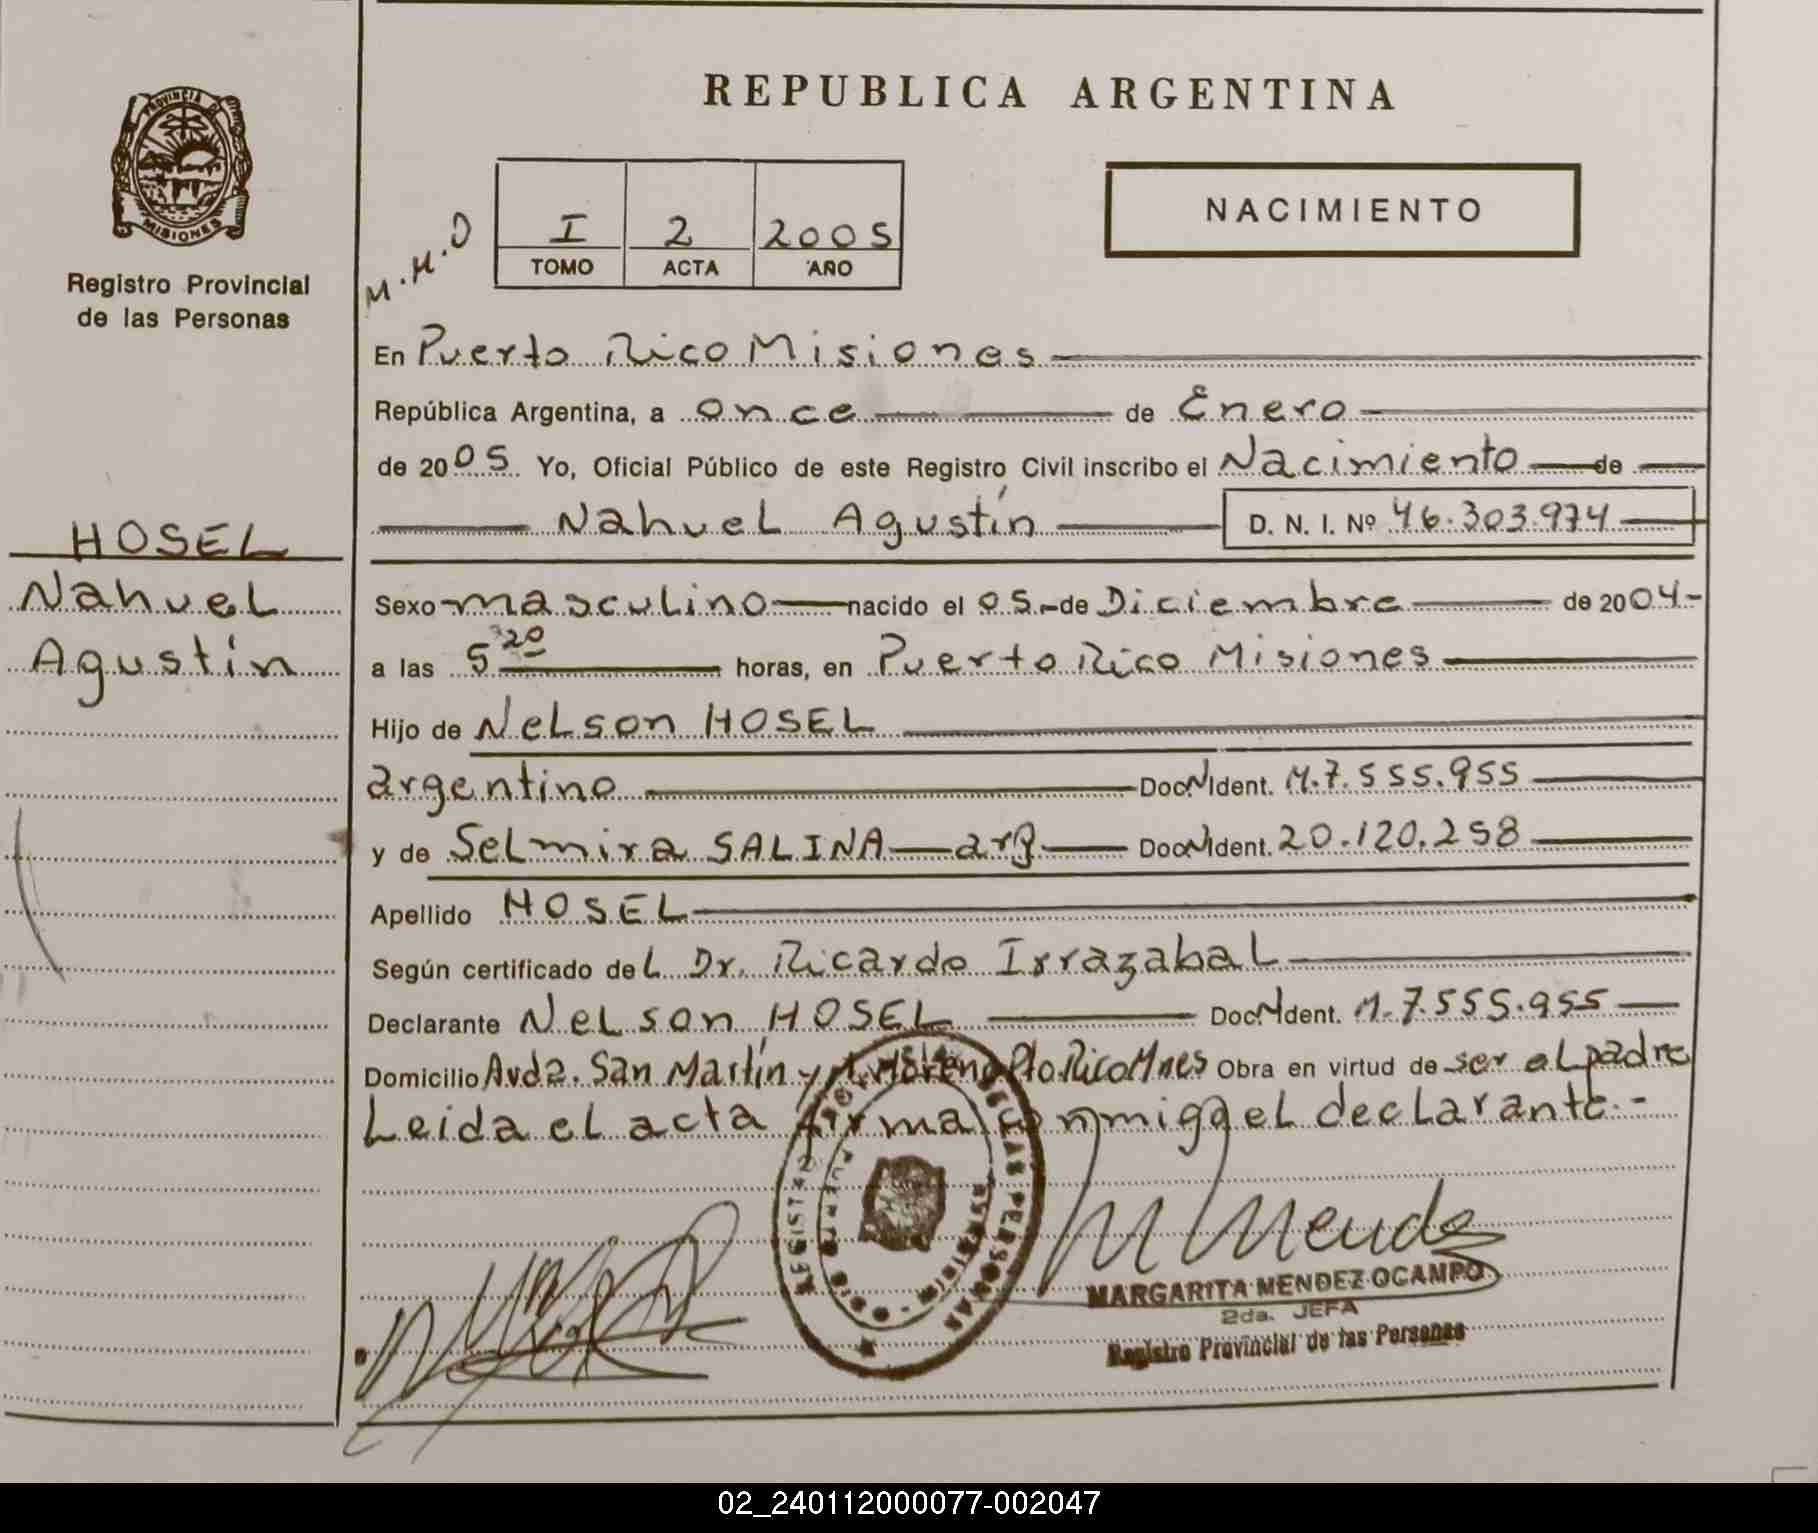 REPUBLICA ARGENTINA
PROVINCIA D
MISIONES
Registro Provincial
de las Personas
M.H.D
I 2 2005
TOMO ACTA AÑO
NACIMIENTO
En Puerto Rico Misiones
República Argentina, a once de Enero
de 2005 Yo, Oficial Público de este Registro Civil inscribo el Nacimiento de
Nahuel Agustín D. N. I. Nº 46.303.974
HOSEL
Nahuel
Agustín
Sexo masculino nacido el 05 de Diciembre de 2004
a las 5 20 horas, en Puerto Rico Misiones
Hijo de Nelson HOSEL
argentino Doc.N.Ident. M.7.555.955
y de Selmira SALINA arg Doc.N.Ident. 20.120.258
Apellido HOSEL
Según certificado del Dr. Ricardo Irrazabal
Declarante Nelson HOSEL Doc.N.Ident. M.7.555.955
Domicilio Avda. San Martín y M. Moreno Pto Rico Mnes Obra en virtud de ser el padre
Leida el acta firma conmigo el declarante.-
MARGARITA MENDEZ OCAMPO
2da. JEFA
Registro Provincial de las Personas
02_240112000077-002047